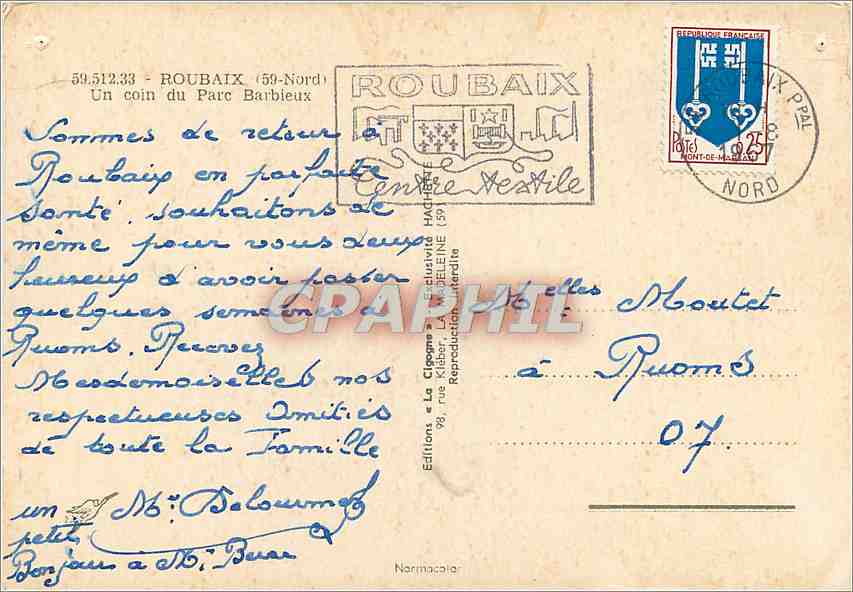 59.512.33 - ROUBAIX (59-Nord)
Un coin du Parc Barbieux
Sommes de retour à
Roubaix en parfaite
santé, souhaitons de
même pour vous deux
heureux d'avoir passer
quelques semaines à
Ruoms. Recevez
Mesdemoiselles nos
respectueuses Amitiés
de toute la Famille
un Mr
petit
Bonjour a Mr
ROUBAIX
Centre textile
REPUBLIQUE FRANÇAISE
POSTES 25
MONT-DE-MARSAN
ROUBAIX PPAL
NORD
Editions « La Cigogne » - Exclusivité HACHETTE
98, rue Kléber, LA MADELEINE (59)
Reproduction interdite
Melles Moutet
à Ruoms
07.
Normacolor
CPAPHIL